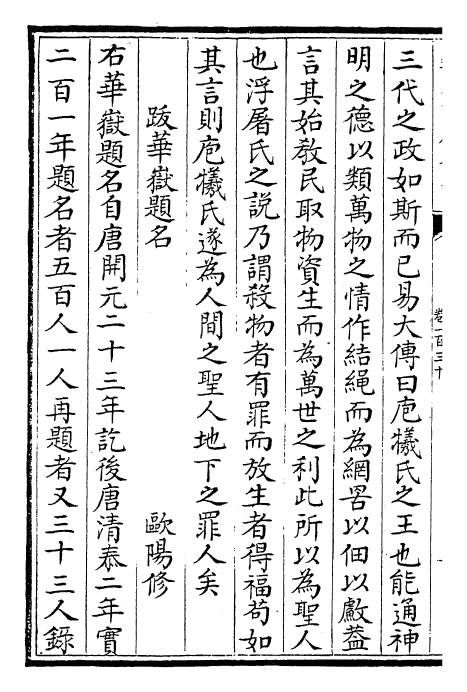 三代之政如斯而已易大傳曰庖犧氏之王也能通神
明之德以類萬物之情作結繩而為網罟以佃以䱷葢
言其始教民取物資生而為萬世之利此所以為聖人
也浮屠氏之説乃謂殺物者有罪而放生者得福苟如
其言則庖犧氏遂為人間之聖人地下之罪人矣
跋華嶽題名
歐陽修
右華嶽題名自唐開元二十三年訖後唐清泰二年實
二百一年題名者五百人一人再題者又三十三人錄
卷一百三十